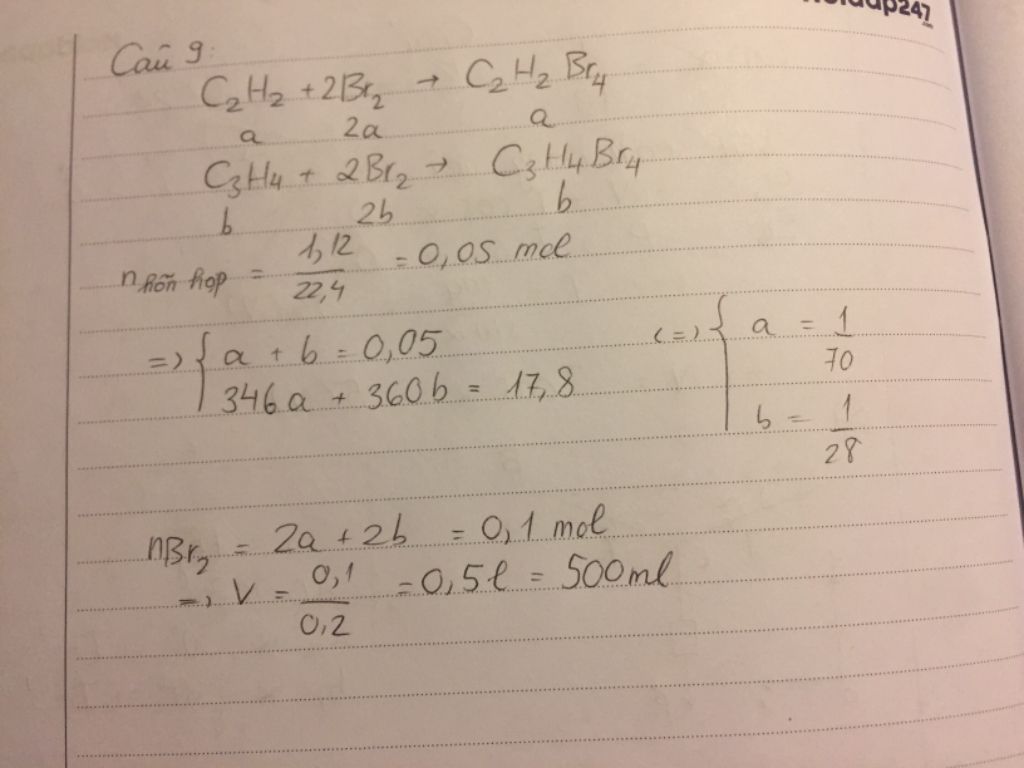 Câu 9:
C₂H₂ + 2Br₂ → C₂H₂Br₄
a 2a a
C₃H₄ + 2Br₂ → C₃H₄Br₄
b 2b b
n hỗn hợp = 1,12/22,4 = 0,05 mol
=> { a + b = 0,05 (=) { a = 1/70
346a + 360b = 17,8 b = 1/28
nBr₂ = 2a + 2b = 0,1 mol
=> V = 0,1/0,2 = 0,5l = 500ml